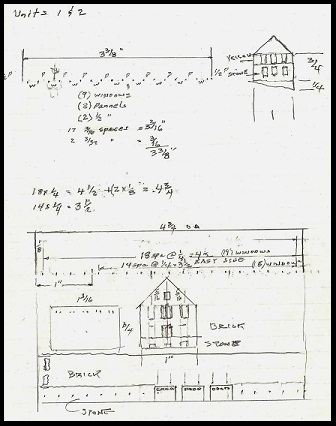 Units 1 & 2
3 3/8"
1/2"
P W P W P W P W
YELLOW
STONE
3/4
1/4
(9) WINDOWS
(8) PANNELS
(2) 1/2"
17 3/16 SPACES = 3 3/16"
2 3/32 " = 3/16
3 3/8"
18 x 1/4 = 4 1/2 + (2 x 1/8 = 4 3/4
14 x 1/4 = 3 1/2
4 3/4 OA
18 SPA @ 1/4 = 4 1/2 (9) WINDOWS
14 SPA @ 1/4 = 3 1/2 EAST SIDE
WINDOWS
1"
1 3/16
3/4
BRICK
STONE
1"
BRICK
STONE